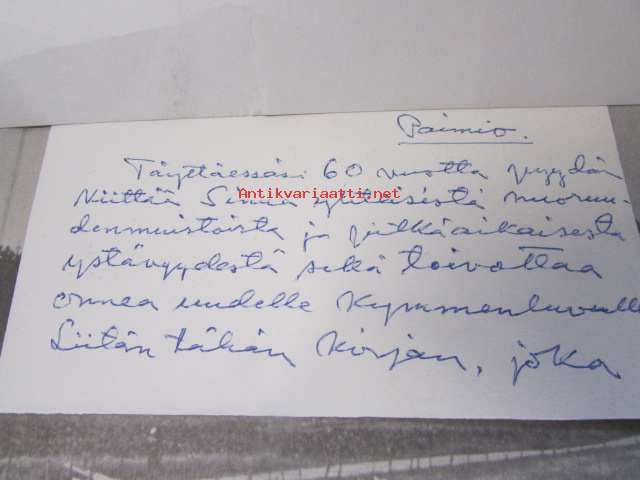 Paimio.
Täyttäessäsi 60 vuotta pyydän
Kiittää Sinua yhteisistä nuoruu-
Antikvariaatti.net
denmuistoista ja pitkäaikaisesta
ystävyydestä sekä toivottaa
onnea uudelle kymmenluvulle
Liitän tähän kirjan, joka